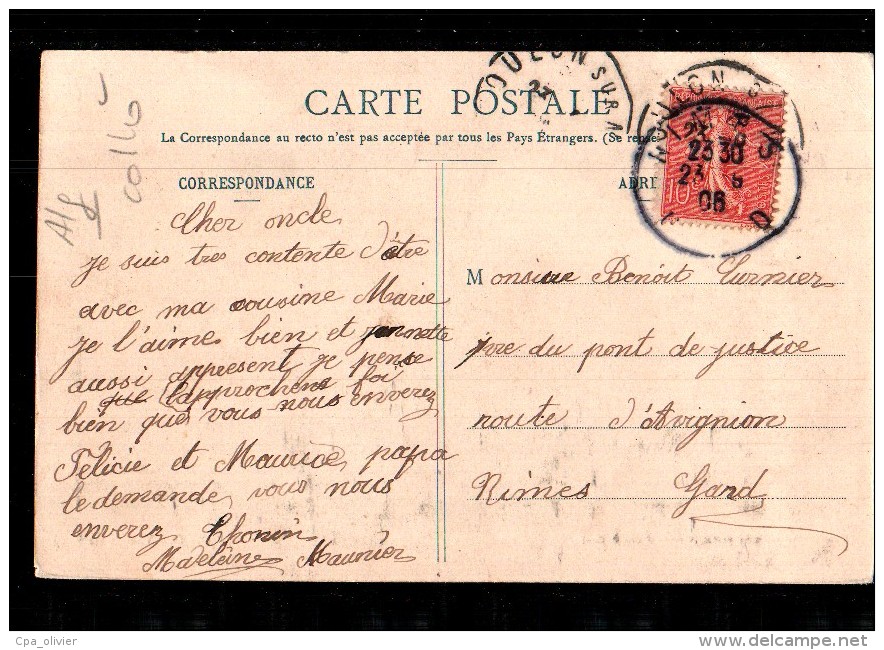 CARTE POSTALE
La Correspondance au recto n'est pas acceptée par tous les Pays Étrangers. (Se rense
CORRESPONDANCE
ADRE
Alg
Collo
OULON SUR
23 30
23 6
06
10
Cher oncle
je suis tres contente d'être
avec ma cousine Marie
je l'aime bien et jennette
aussi appresent je pense
que l'approchens foi
bien que vous nous enverez
Felicie et Maurice, papa
le demande, vous nous
enverez Thonin
Madeleine Maurier
Monsieur Benoit Curnier
du pont de justice
route d'Avignion
Nimes Gard
Cpa_olivier
delcampe.net